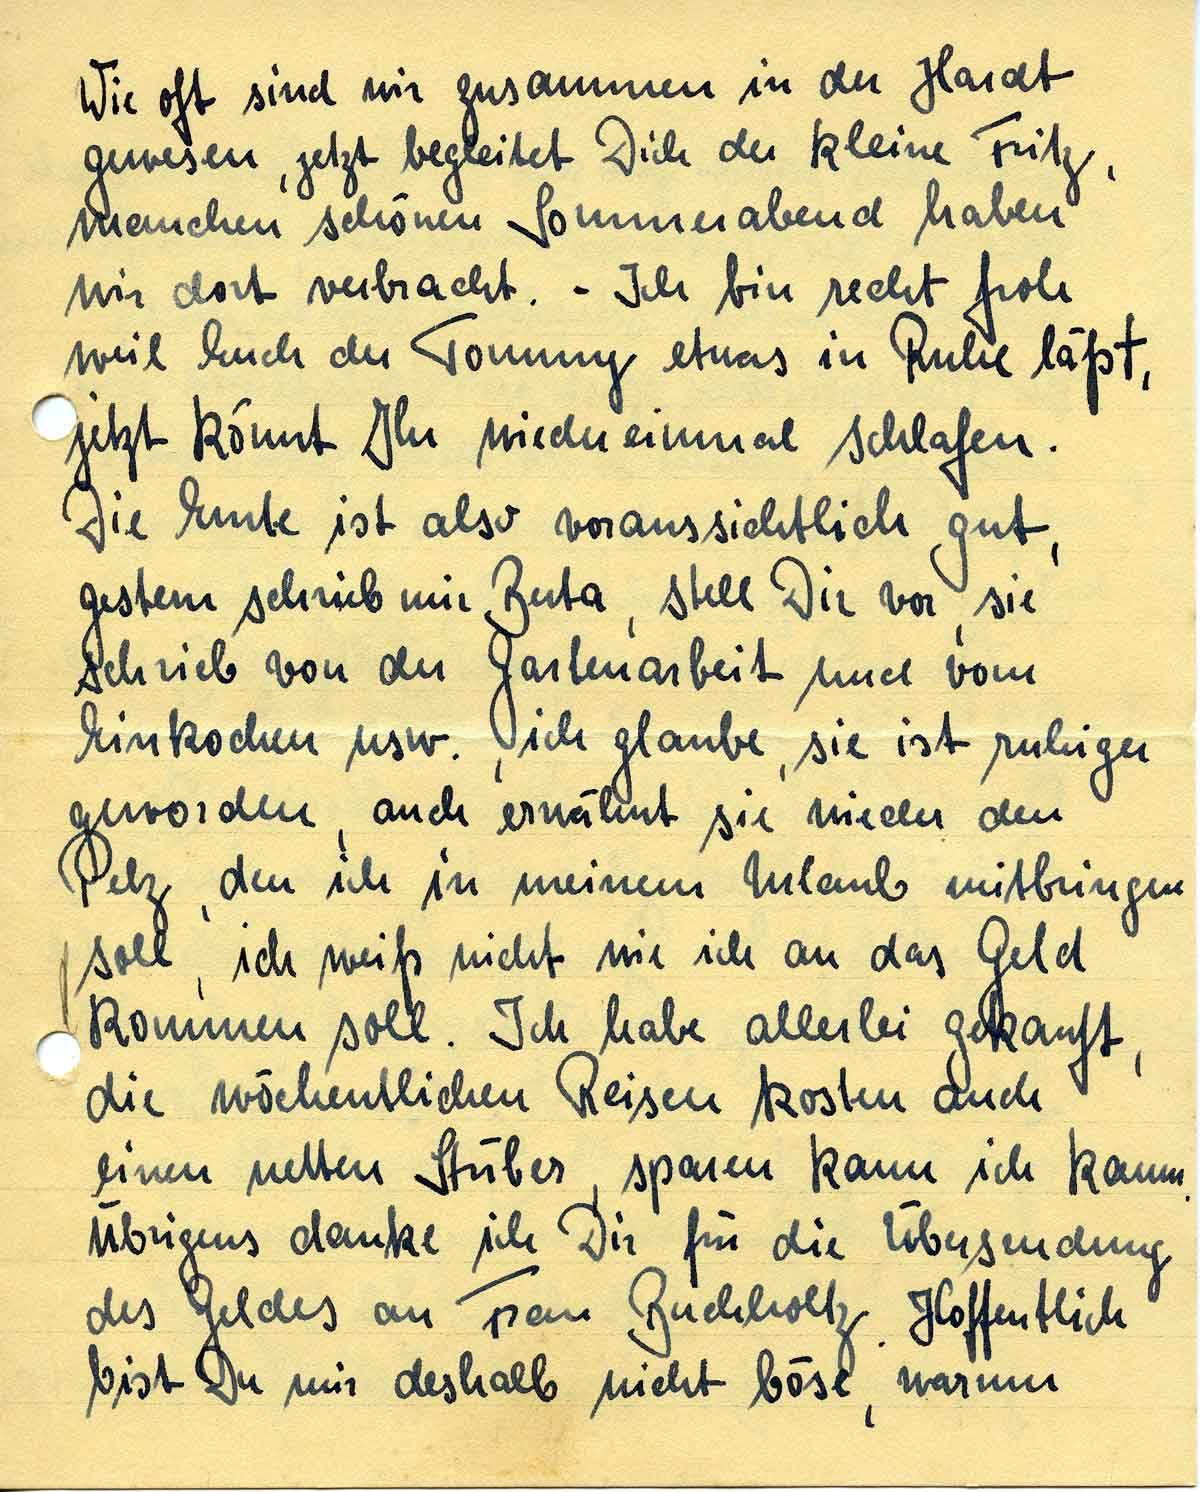 Wie oft sind wir zusammen in der Hardt
gewesen, jetzt begleitet Dich der kleine Fritz,
manchen schönen Sommerabend haben
wir dort verbracht. - Ich bin recht froh
weil Euch der Tommy etwas in Ruhe läßt,
jetzt könnt Ihr wieder einmal schlafen.
Die Ernte ist also voraussichtlich gut,
gestern schrieb mir Berta, stell Dir vor, sie
schrieb von der Gartenarbeit und vom
Einkochen usw., ich glaube, sie ist ruhiger
geworden, auch erwähnt sie wieder den
Pelz, den ich in meinem Urlaub mitbringen
soll, ich weiß nicht wie ich an das Geld
kommen soll. Ich habe allerlei gekauft,
die wöchentlichen Reisen kosten auch
einen netten Stüber, sparen kann ich kaum.
Übrigens danke ich Dir für die Übersendung
des Geldes an Frau Buchholtz. Hoffentlich
bist Du mir deshalb nicht böse, warum